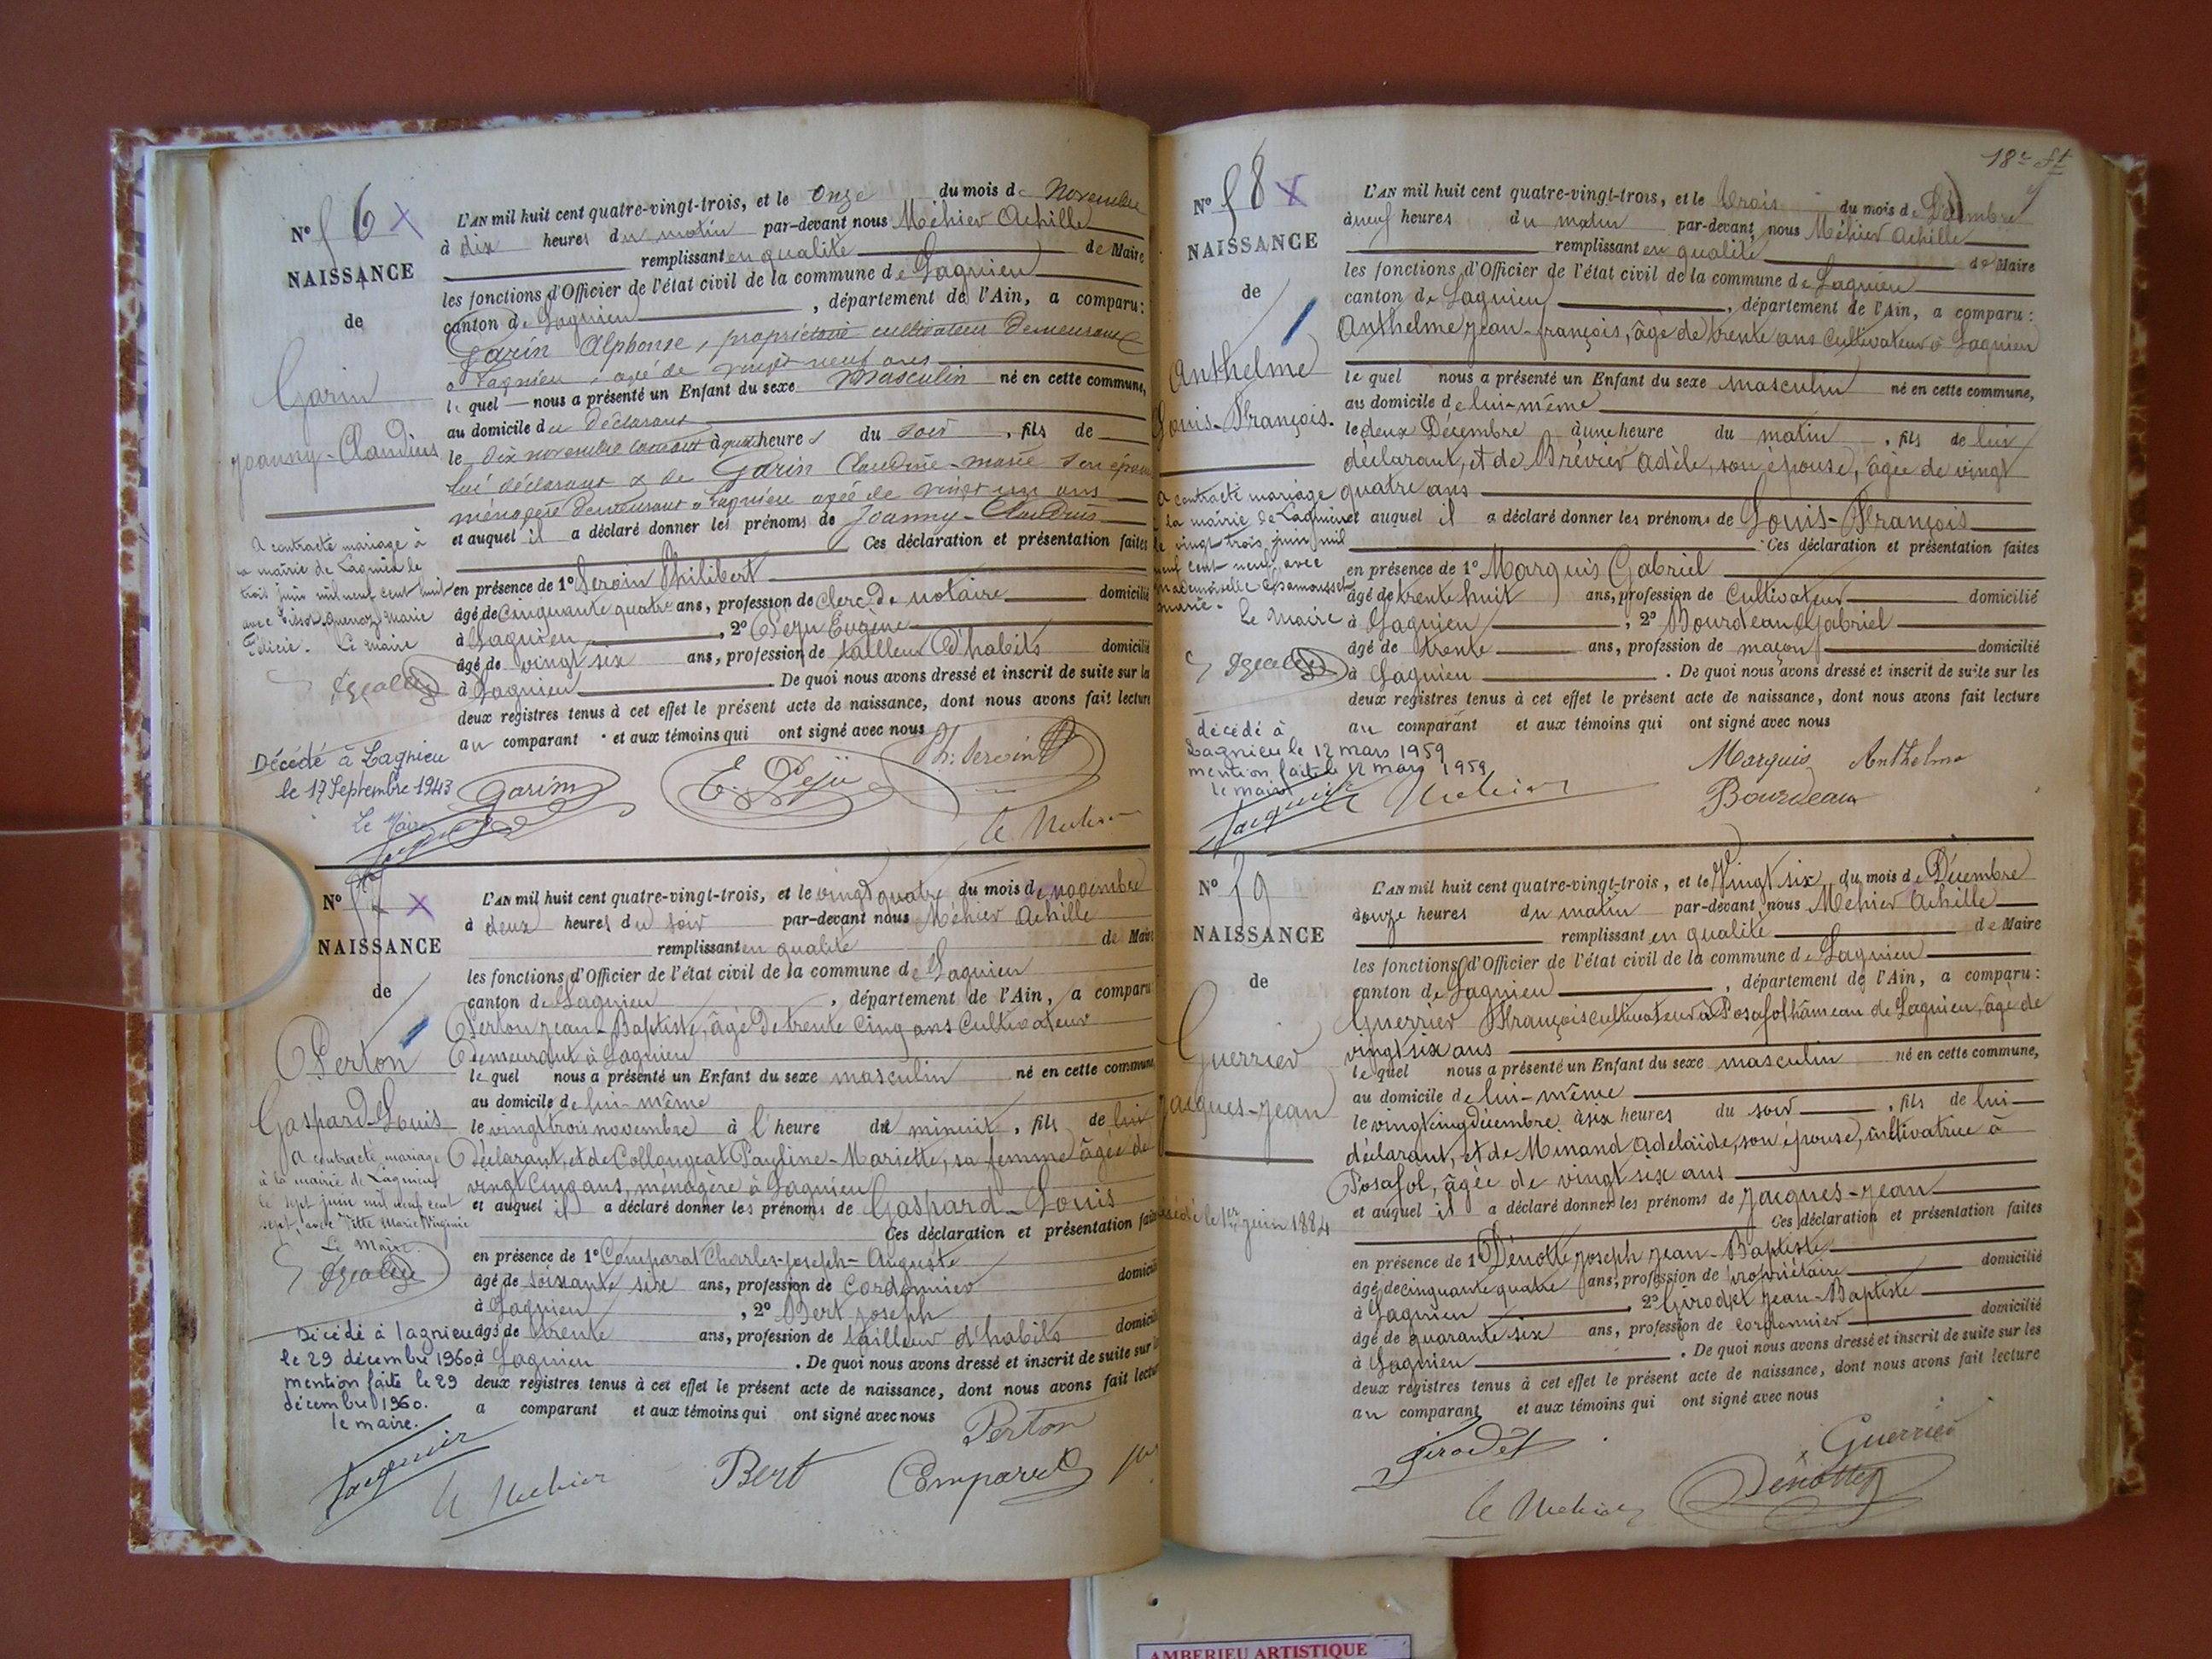 N° 56 X
NAISSANCE
de
Garin
Joanny-Claudius
A contracté mariage à
la mairie de Lagnieu le
trois juin mil neuf cent huit
avec Marie
Félicie. Le Maire
Décédé à Lagnieu
le 17 Septembre 1943
Le Maire
L'AN mil huit cent quatre-vingt-trois, et le onze du mois de Novembre
à dix heures du matin par-devant nous Méhier Achille
remplissant en qualité de Maire
les fonctions d'Officier de l'état civil de la commune de Lagnieu
canton de Lagnieu, département de l'Ain, a comparu:
Garin Alphonse, propriétaire cultivateur demeurant
à Lagnieu, agé de vingt neuf ans
le quel nous a présenté un Enfant du sexe Masculin né en cette commune,
au domicile du déclarant
le dix novembre courant à heures du soir, fils de
lui déclarant & de Garin Claudine-Marie son épouse
ménagère demeurant à Lagnieu agée de vingt un ans
et auquel il a déclaré donner les prénoms de Joanny-Claudius
Ces déclaration et présentation faites
en présence de 1° Seroin Philibert
âgé de cinquante quatre ans, profession de clerc de notaire domicilié
à Lagnieu, 2° Péju Eugène
âgé de vingt six ans, profession de tailleur d'habits domicilié
à Lagnieu. De quoi nous avons dressé et inscrit de suite sur les
deux registres tenus à cet effet le présent acte de naissance, dont nous avons fait lecture
au comparant et aux témoins qui ont signé avec nous
Garin E. Péju Ph. Seroin
A Méhier
N° 57 X
NAISSANCE
de
Perton
Gaspard-Louis
A contracté mariage
à la mairie de Lagnieu
le sept juin mil neuf cent
sept avec Marie Virginie
Le Maire
Décédé à Lagnieu
le 29 décembre 1960
mention faite le 29
décembre 1960.
le maire.
L'AN mil huit cent quatre-vingt-trois, et le vingt quatre du mois de novembre
à deux heures du soir par-devant nous Méhier Achille
remplissant en qualité de Maire
les fonctions d'Officier de l'état civil de la commune de Lagnieu
canton de Lagnieu, département de l'Ain, a comparu
Perton Jean-Baptiste, âgé de trente cinq ans Cultivateur
demeurant à Lagnieu
le quel nous a présenté un Enfant du sexe masculin né en cette commune
au domicile de lui-même
le vingt trois novembre à l'heure de minuit, fils de lui
Déclarant, et de Collongeat Pauline-Mariette, sa femme âgée de
vingt cinq ans, ménagère à Lagnieu
et auquel il a déclaré donner les prénoms de Gaspard-Louis
Ces déclaration et présentation faites
en présence de 1° Comparat Charles-Joseph-Auguste
âgé de soixante six ans, profession de Cordonnier domicilié
à Lagnieu, 2° Bert Joseph
âgé de trente ans, profession de tailleur d'habits domicilié
à Lagnieu. De quoi nous avons dressé et inscrit de suite sur les
deux registres tenus à cet effet le présent acte de naissance, dont nous avons fait lecture
a comparant et aux témoins qui ont signé avec nous
Perton
A Méhier Bert Comparat
N° 58 X
NAISSANCE
de
Anthelme
Louis-François.
A contracté mariage
à la mairie de Lagnieu
le vingt trois juin mil
neuf cent neuf avec
mademoiselle Chamousset
marie.
Le Maire
décédé à
Lagnieu le 12 mars 1959
mention faite le 12 mars 1959
le maire
L'AN mil huit cent quatre-vingt-trois, et le trois du mois de Décembre
à neuf heures du matin par-devant nous Méhier Achille
remplissant en qualité de Maire
les fonctions d'Officier de l'état civil de la commune de Lagnieu
canton de Lagnieu, département de l'Ain, a comparu:
Anthelme Jean-François, âgé de trente ans Cultivateur à Lagnieu
le quel nous a présenté un Enfant du sexe masculin né en cette commune,
au domicile de lui-même
le deux Décembre à une heure du matin, fils de lui
déclarant, et de Brévier Adèle, son épouse, âgée de vingt
quatre ans
et auquel il a déclaré donner les prénoms de Louis-François
Ces déclaration et présentation faites
en présence de 1° Marquis Gabriel
âgé de trente huit ans, profession de Cultivateur domicilié
à Lagnieu, 2° Bourdeau Gabriel
âgé de trente ans, profession de maçon domicilié
à Lagnieu. De quoi nous avons dressé et inscrit de suite sur les
deux registres tenus à cet effet le présent acte de naissance, dont nous avons fait lecture
au comparant et aux témoins qui ont signé avec nous
Marquis Anthelme
Méhier Bourdeau
N° 59
NAISSANCE
de
Guerrier
Jacques-Jean
décédé le 1er juin 1884
L'AN mil huit cent quatre-vingt-trois, et le Vingt six du mois de Décembre
à onze heures du matin par-devant nous Méhier Achille
remplissant en qualité de Maire
les fonctions d'Officier de l'état civil de la commune de Lagnieu
canton de Lagnieu, département de l'Ain, a comparu:
Guerrier François cultivateur à Posafol hameau de Lagnieu, âgé de
vingt six ans
le quel nous a présenté un Enfant du sexe masculin né en cette commune,
au domicile de lui-même
le vingt cinq décembre à six heures du soir, fils de lui
déclarant, et de Minand Adelaïde, son épouse, cultivatrice à
Posafol, âgée de vingt six ans
et auquel il a déclaré donner les prénoms de Jacques-Jean
Ces déclaration et présentation faites
en présence de 1° Dénotte Joseph Jean-Baptiste
âgé de cinquante quatre ans, profession de propriétaire domicilié
à Lagnieu, 2° Girodet Jean-Baptiste
âgé de quarante six ans, profession de cordonnier domicilié
à Lagnieu. De quoi nous avons dressé et inscrit de suite sur les
deux registres tenus à cet effet le présent acte de naissance, dont nous avons fait lecture
au comparant et aux témoins qui ont signé avec nous
Girodet Guerrier
A Méhier Dénotte
AMBERIEU ARTISTIQUE